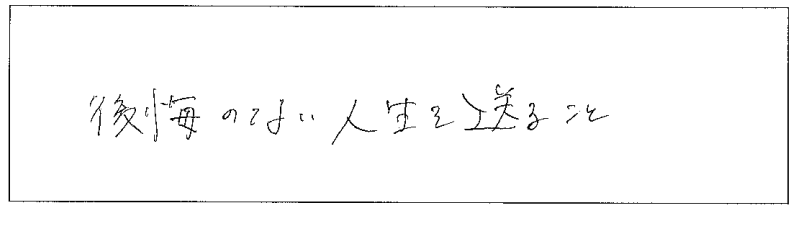 後悔のない人生を送ること